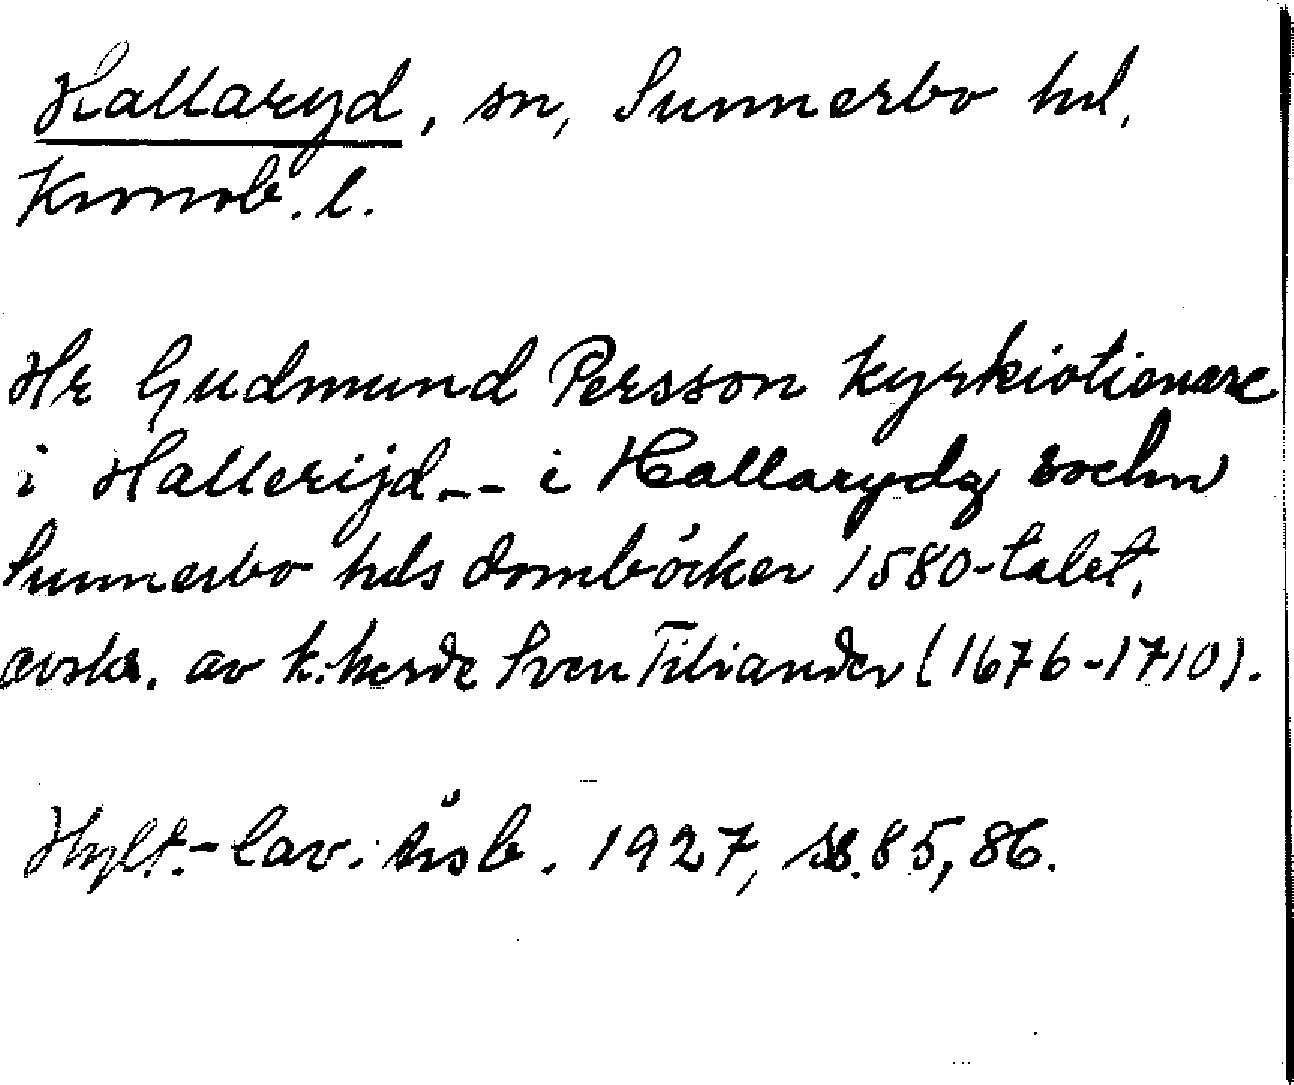 Hallaryd, sn, Sunnerbo hd,
Kronob. l.
Hr Gudmund Persson kyrkiotienare
i Hallerijd -- i Hallarydz sochn
Sunnerbo hds domböcker 1580-talet,
avskr. av k.herde Sven Tiliander (1676-1710).
Hylt.-Cav. årsb. 1927, ss. 85, 86.